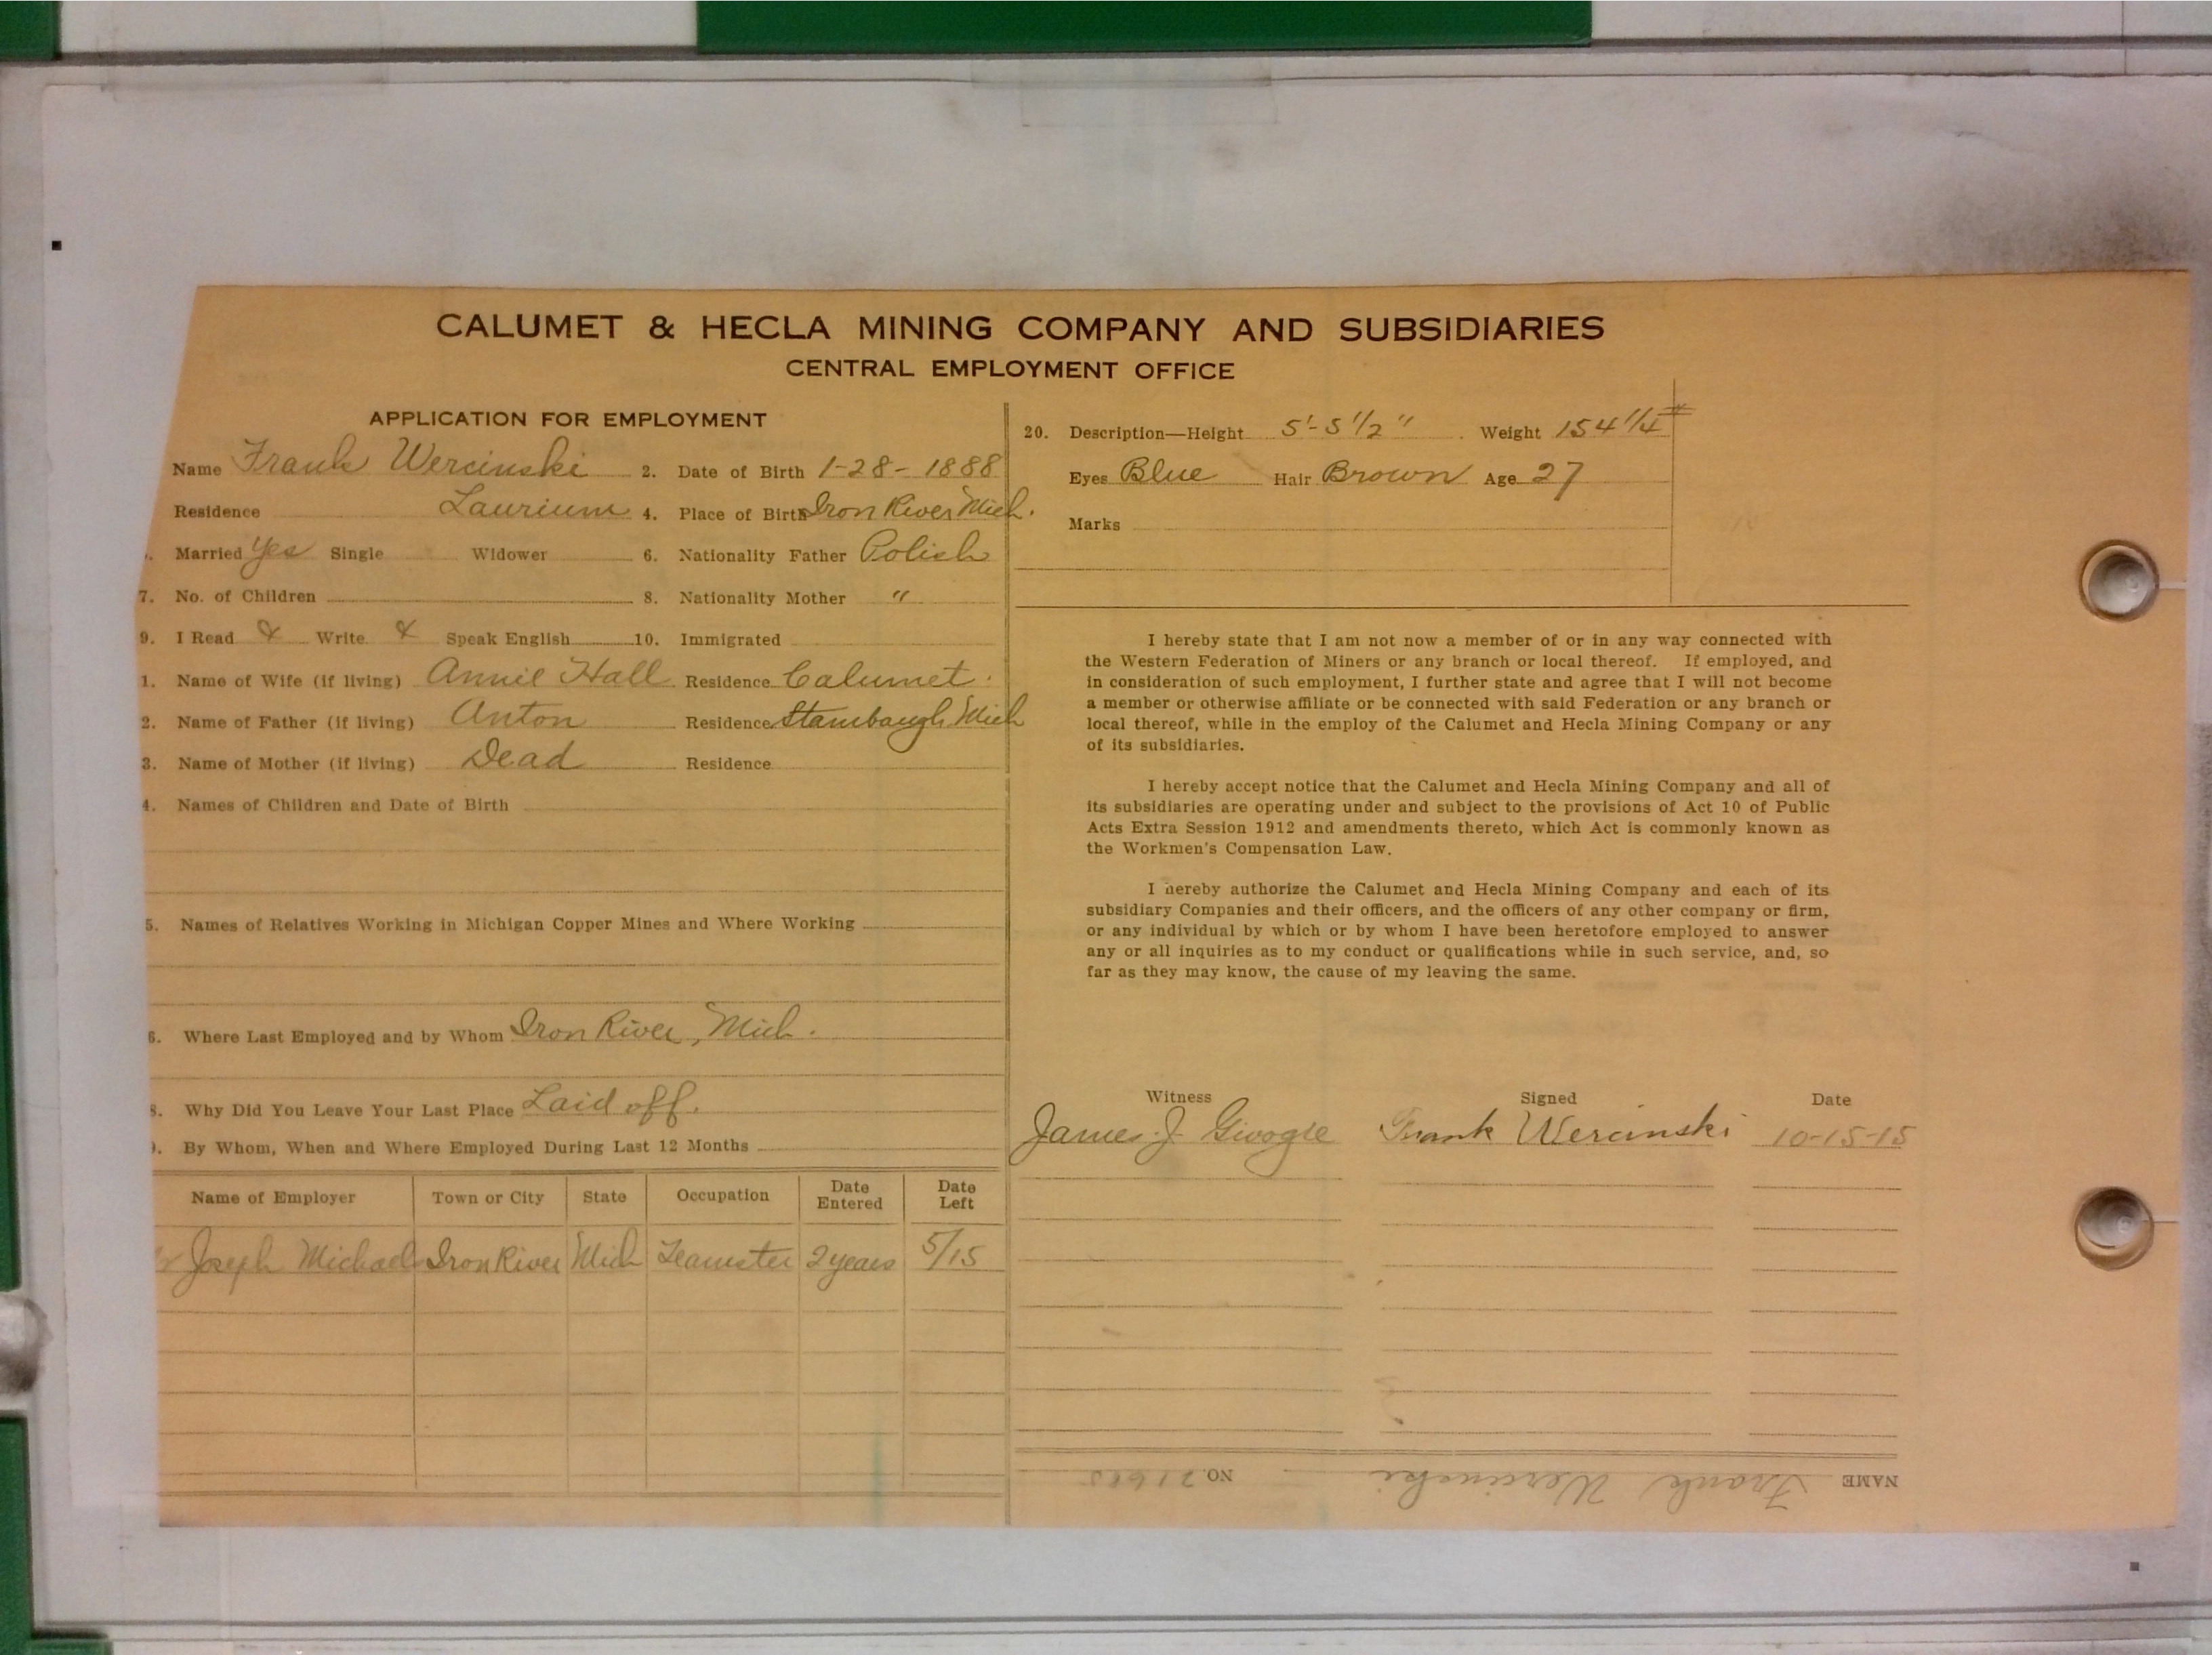 CALUMET & HECLA MINING COMPANY AND SUBSIDIARIES
CENTRAL EMPLOYMENT OFFICE
APPLICATION FOR EMPLOYMENT
Name Frank Wercinski 2. Date of Birth 1-28-1888
Residence Laurium 4. Place of Birth Iron River Mich.
Married Yes Single Widower 6. Nationality Father Polish
7. No. of Children 8. Nationality Mother "
9. I Read & Write & Speak English 10. Immigrated
1. Name of Wife (if living) Annie Hall Residence Calumet.
2. Name of Father (if living) Anton Residence Stambaugh Mich
3. Name of Mother (if living) Dead Residence
4. Names of Children and Date of Birth
5. Names of Relatives Working in Michigan Copper Mines and Where Working
6. Where Last Employed and by Whom Iron River, Mich.
8. Why Did You Leave Your Last Place Laid off.
9. By Whom, When and Where Employed During Last 12 Months
Name of Employer Town or City State Occupation Date Entered Date Left
Joseph Michael Iron River Mich Teamster 2 years 5/15
20. Description—Height 5'-5 1/2" Weight 154 1/4 #
Eyes Blue Hair Brown Age 27
Marks
I hereby state that I am not now a member of or in any way connected with
the Western Federation of Miners or any branch or local thereof. If employed, and
in consideration of such employment, I further state and agree that I will not become
a member or otherwise affiliate or be connected with said Federation or any branch or
local thereof, while in the employ of the Calumet and Hecla Mining Company or any
of its subsidiaries.
I hereby accept notice that the Calumet and Hecla Mining Company and all of
its subsidiaries are operating under and subject to the provisions of Act 10 of Public
Acts Extra Session 1912 and amendments thereto, which Act is commonly known as
the Workmen's Compensation Law.
I hereby authorize the Calumet and Hecla Mining Company and each of its
subsidiary Companies and their officers, and the officers of any other company or firm,
or any individual by which or by whom I have been heretofore employed to answer
any or all inquiries as to my conduct or qualifications while in such service, and, so
far as they may know, the cause of my leaving the same.
Witness Signed Date
James J. Frank Wercinski 10-15-15
NAME Frank Wercinski NO.